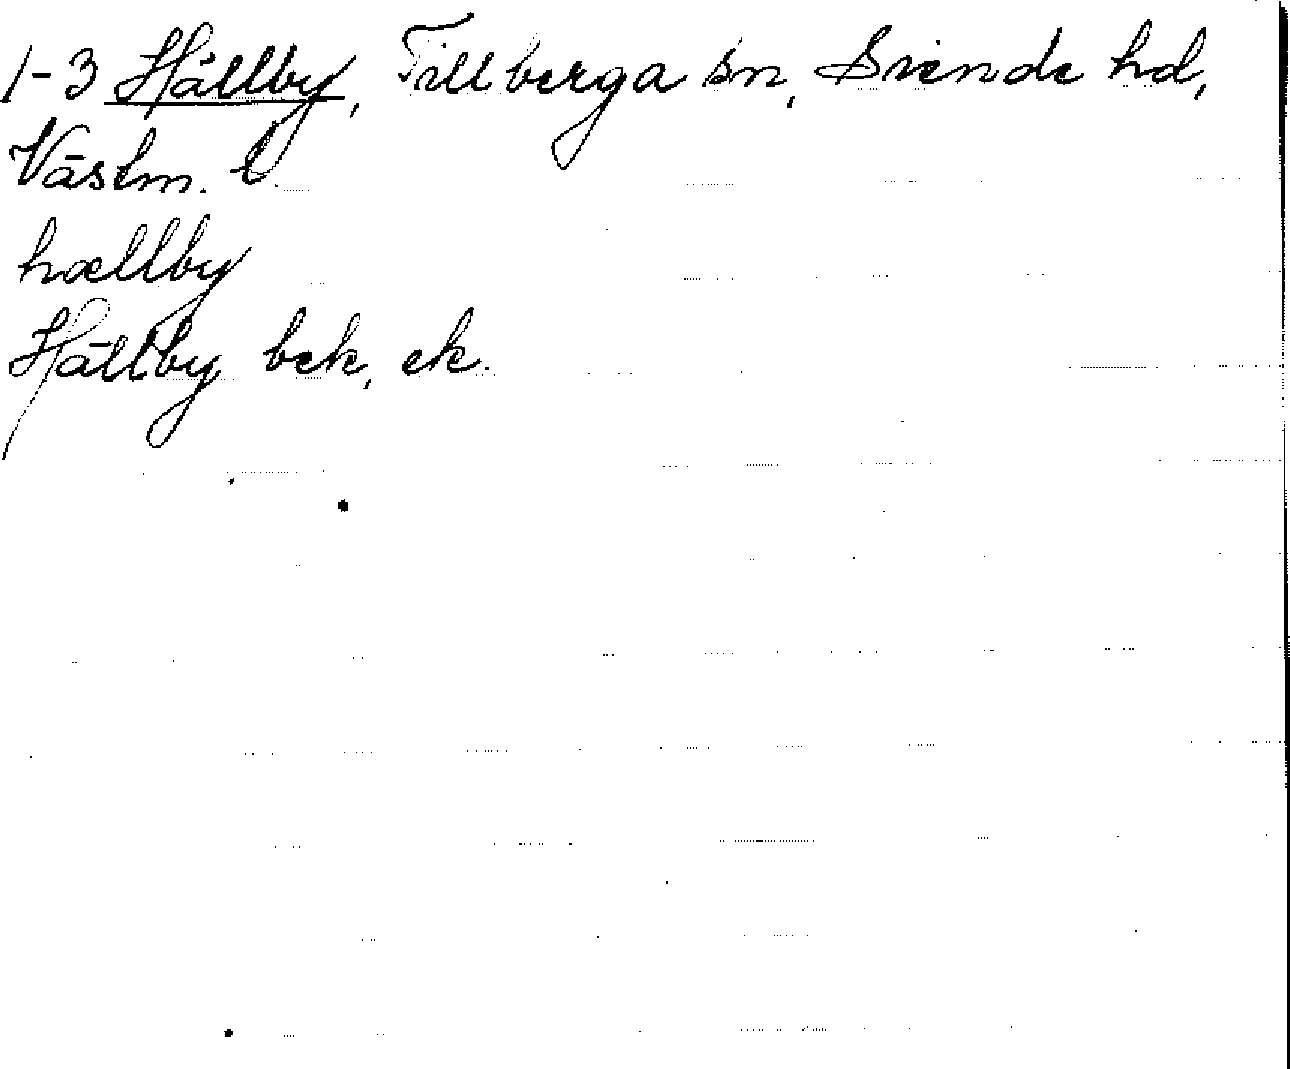 1-3 Hällby, Tillberga sn, Siende hd,
Västm. l.
hællby
Hällby bek, ek.